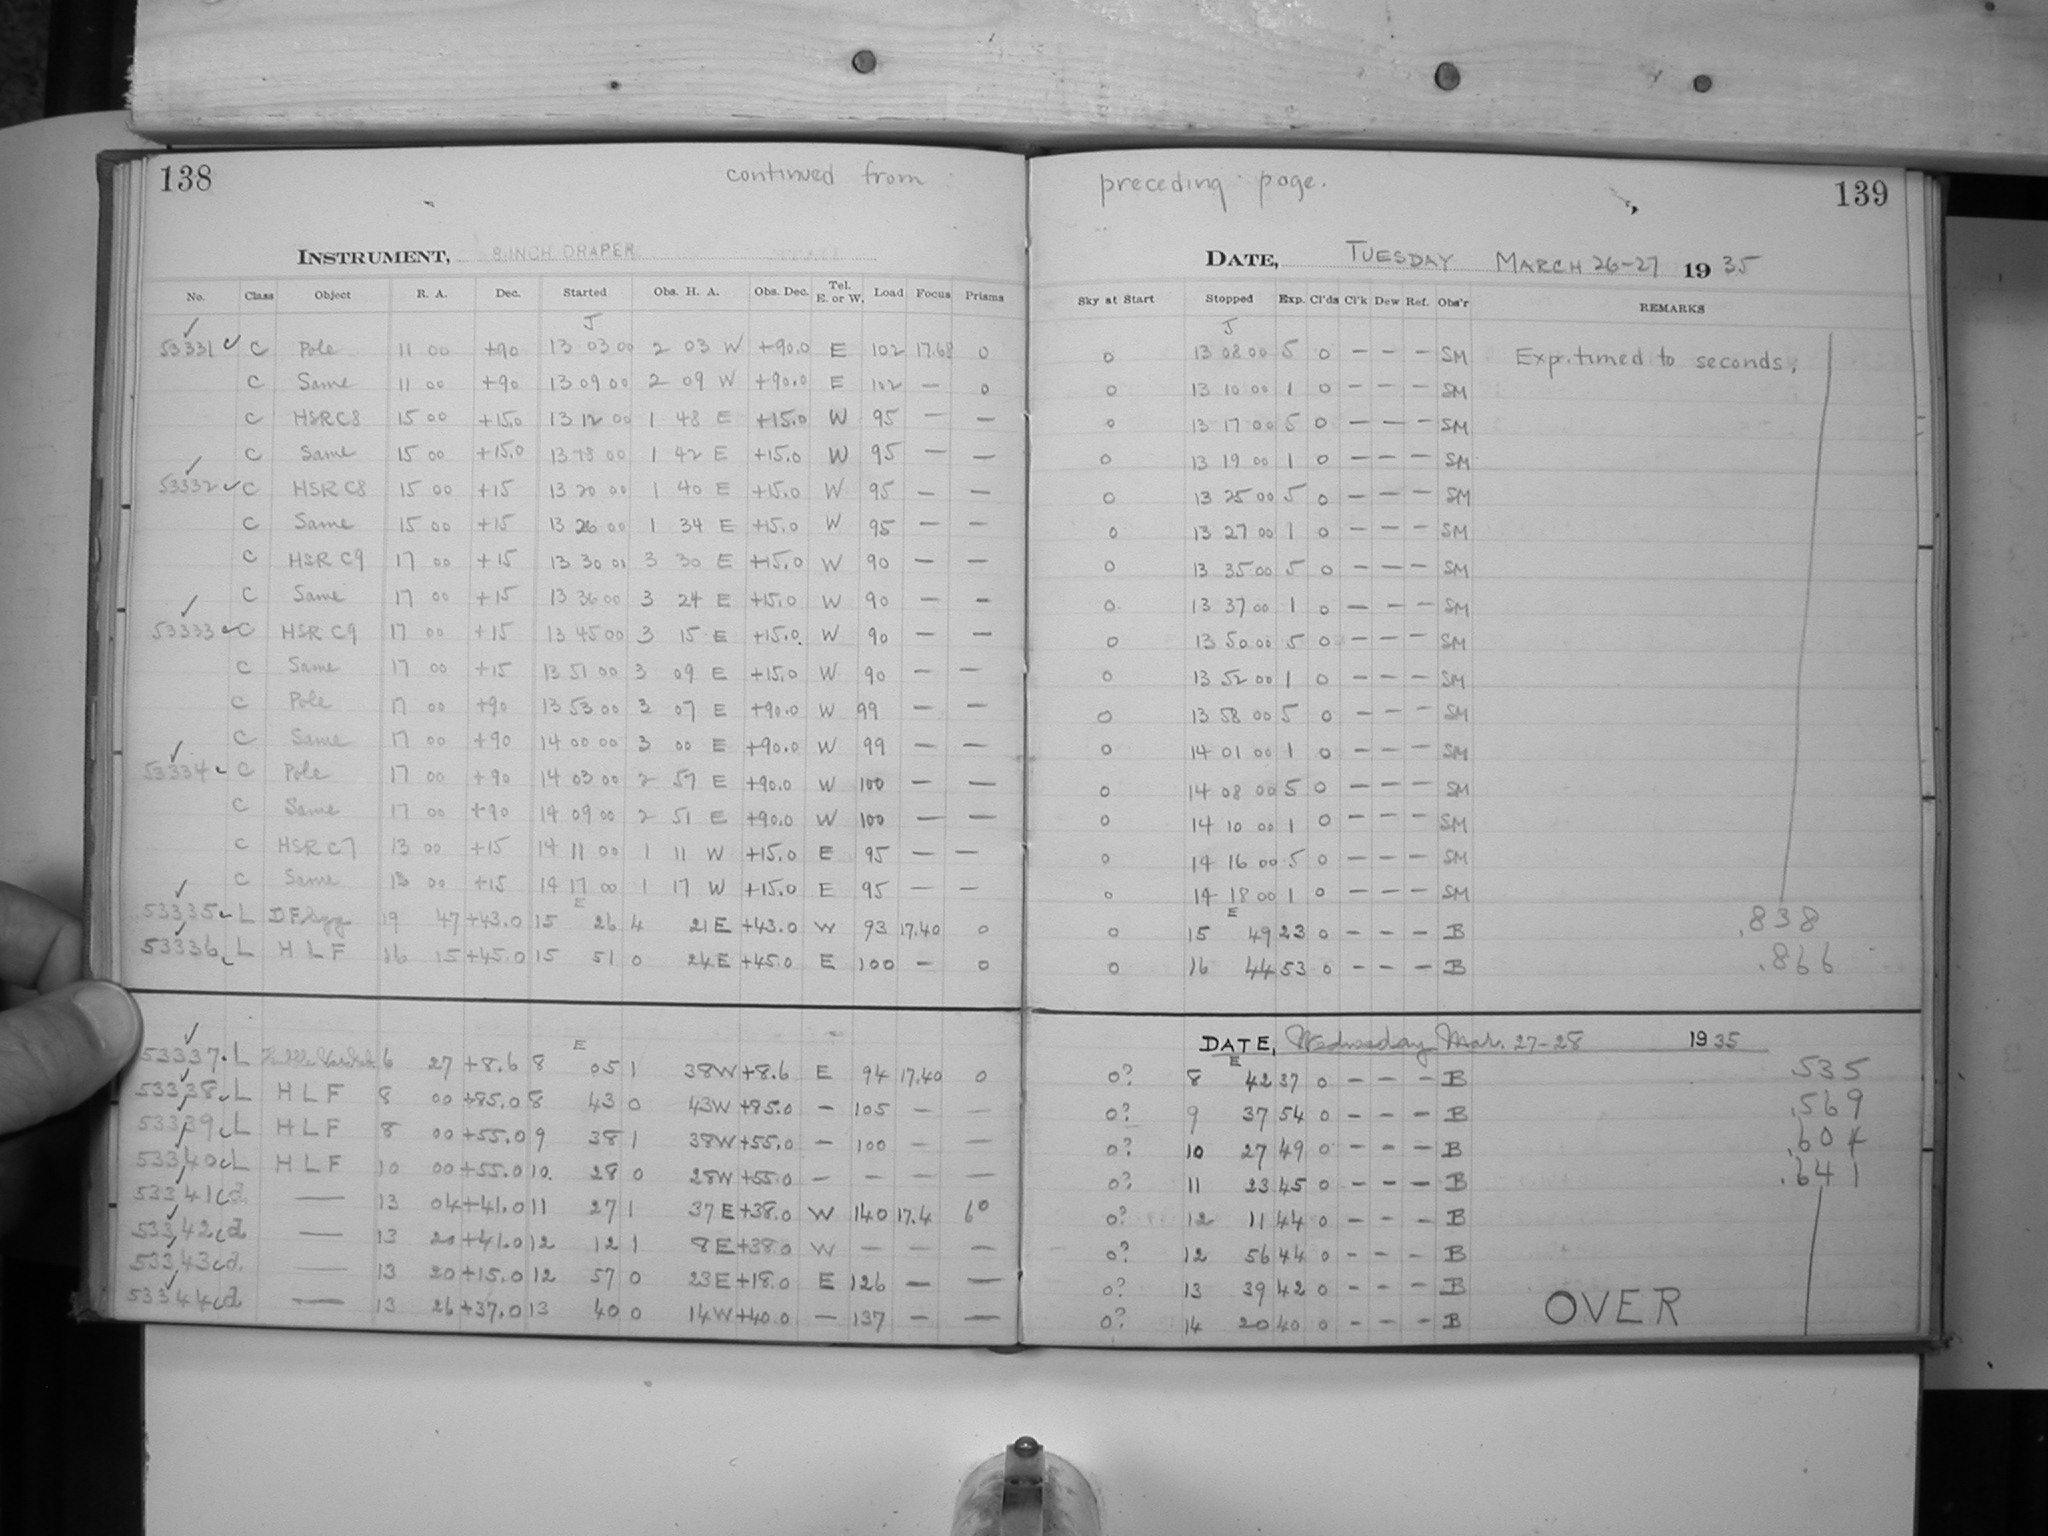 138 continued from preceding page. 139
INSTRUMENT, 8 INCH DRAPER DATE, TUESDAY MARCH 26-27 1935
No. Class Object R. A. Dec. Started Obs. H. A. Obs. Dec. Tel. E. or W. Load Focus Prisms Sky at Start Stopped Exp. Cl'ds Cl'k Dew Ref. Obs'r REMARKS
J J
53331 C Pole 11 00 +90 13 03 00 2 03 W +90.0 E 102 17.68 0 0 13 08 00 5 0 — — — SM Exp. timed to seconds,
C Same 11 00 +90 13 09 00 2 09 W +90.0 E 102 — 0 0 13 10 00 1 0 — — — SM
C HSRC8 15 00 +15.0 13 12 00 1 48 E +15.0 W 95 — — 0 13 17 00 5 0 — — — SM
C Same 15 00 +15.0 13 18 00 1 42 E +15.0 W 95 — — 0 13 19 00 1 0 — — — SM
53332 C HSRC8 15 00 +15 13 20 00 1 40 E +15.0 W 95 — — 0 13 25 00 5 0 — — — SM
C Same 15 00 +15 13 26 00 1 34 E +15.0 W 95 — — 0 13 27 00 1 0 — — — SM
C HSR C9 17 00 +15 13 30 00 3 30 E +15.0 W 90 — — 0 13 35 00 5 0 — — — SM
C Same 17 00 +15 13 36 00 3 24 E +15.0 W 90 — — 0 13 37 00 1 0 — — — SM
53333 C HSR C9 17 00 +15 13 45 00 3 15 E +15.0 W 90 — — 0 13 50 00 5 0 — — — SM
C Same 17 00 +15 13 51 00 3 09 E +15.0 W 90 — — 0 13 52 00 1 0 — — — SM
C Pole 17 00 +90 13 53 00 3 07 E +90.0 W 99 — — 0 13 58 00 5 0 — — — SM
C Same 17 00 +90 14 00 00 3 00 E +90.0 W 99 — — 0 14 01 00 1 0 — — — SM
53334 C Pole 17 00 +90 14 03 00 2 57 E +90.0 W 100 — — 0 14 08 00 5 0 — — — SM
C Same 17 00 +90 14 09 00 2 51 E +90.0 W 100 — — 0 14 10 00 1 0 — — — SM
C HSR C7 13 00 +15 14 11 00 1 11 W +15.0 E 95 — — 0 14 16 00 5 0 — — — SM
C Same 13 00 +15 14 17 00 1 17 W +15.0 E 95 — — 0 14 18 00 1 0 — — — SM
E E
53335 L DF Cygg 19 47 +43.0 15 26 4 21E +43.0 W 93 17.40 0 0 15 49 23 0 — — — B .838
53336 L H L F 16 15 +45.0 15 51 0 24E +45.0 E 100 — 0 0 16 44 53 0 — — — B .866
DATE, Wednesday Mar. 27-28 1935
E E
53337 L 6 27 +8.6 8 05 1 38W +8.6 E 94 17.40 0 0? 8 42 37 0 — — — B .535
53338 L H L F 8 00 +85.0 8 43 0 43W +85.0 — 105 — — 0? 9 37 54 0 — — — B .569
53339 L H L F 8 00 +55.0 9 38 1 38W +55.0 — 100 — — 0? 10 27 49 0 — — — B .604
53340 L H L F 10 00 +55.0 10. 28 0 28W +55.0 — — — — 0? 11 23 45 0 — — — B .641
53341 d. — 13 04 +41.0 11 27 1 37E +38.0 W 140 17.4 6° 0? 12 11 44 0 — — — B
53342 d — 13 20 +41.0 12 12 1 8E +38.0 W — — — 0? 12 56 44 0 — — — B
53343 d. — 13 20 +15.0 12 57 0 23E +18.0 E 126 — — 0? 13 39 42 0 — — — B
53344 d — 13 26 +37.0 13 40 0 14W +40.0 — 137 — — 0? 14 20 40 0 — — — B OVER